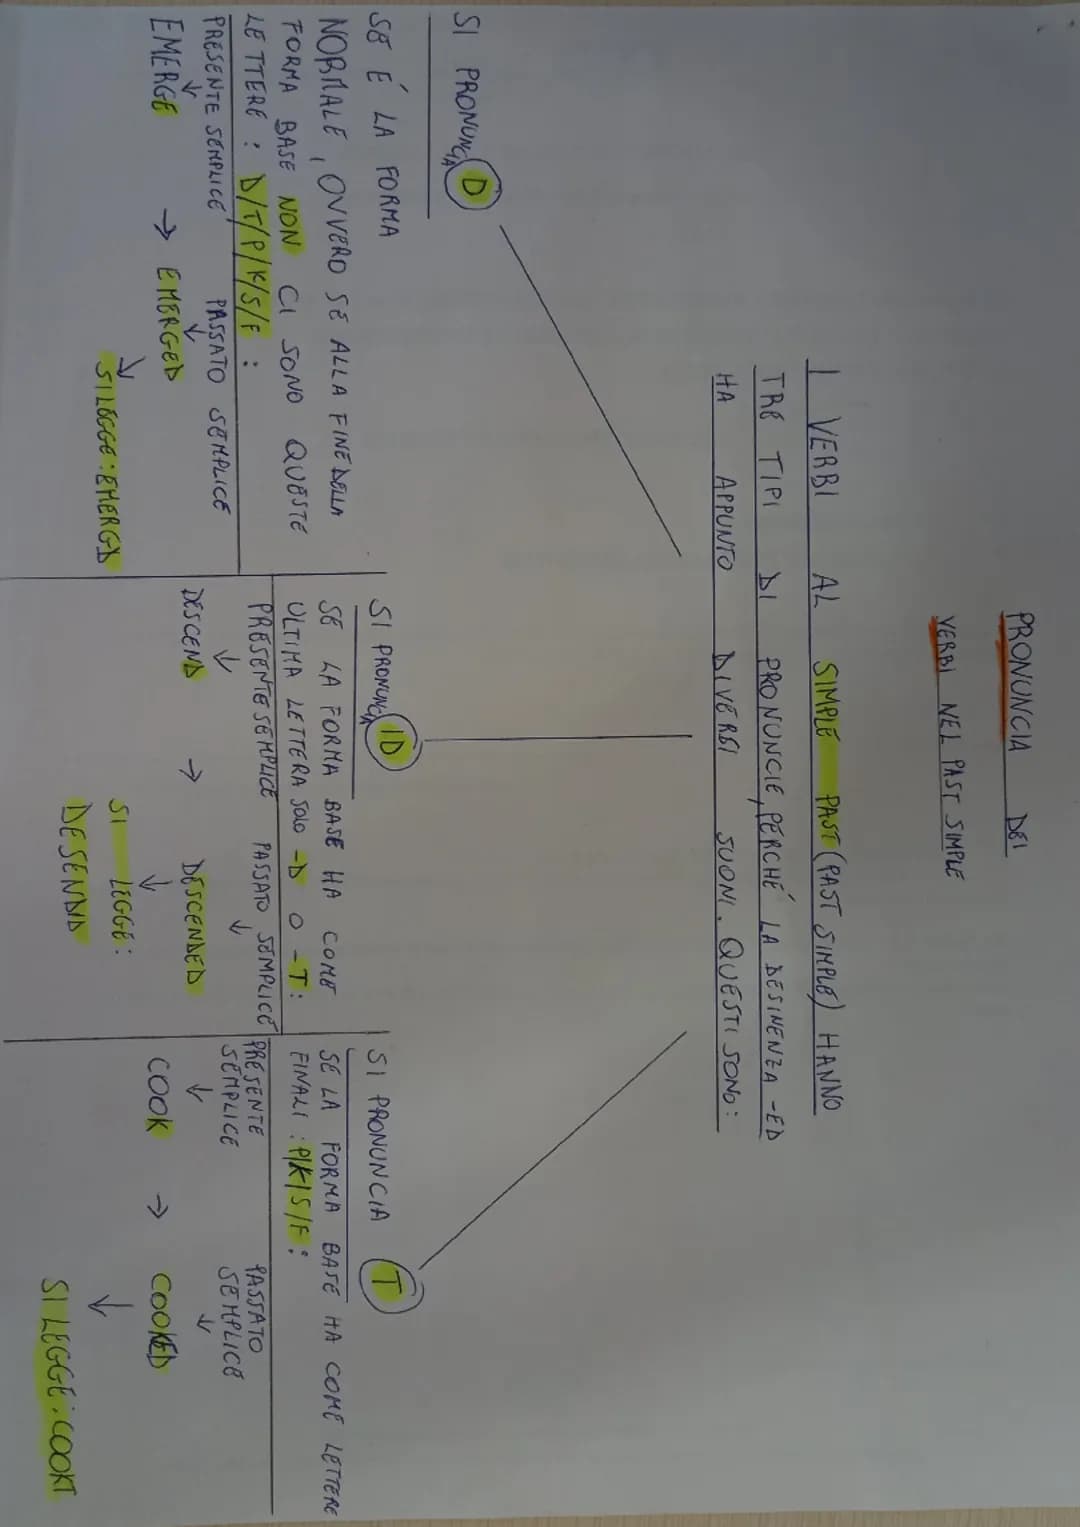 PRONUNCIA DEI
VERBI NEL PAST SIMPLE
I VERBI AL SIMPLE PAST (PAST SIMPLE) HANNO
TRE TIPI DI PRONUNCIE, PERCHÉ LA DESINENZA -ED
HA APPUNTO DIVERSI SUONI. QUESTI SONO:
SI PRONUNCIA D
SE É LA FORMA
NORMALE, OVVERO SE ALLA FINE DELLA
FORMA BASE NON CI SONO QUESTE
LETTERE: D/T/P/K/S/F:
PRESENTE SEMPLICE PASSATO SEMPLICE
↓ ↓
EMERGE → EMERGED
↓
SI LEGGE: EMERGD
SI PRONUNCIA ID
SE LA FORMA BASE HA COME
ULTIMA LETTERA SOLO -D O -T:
PRESENTE SEMPLICE PASSATO SEMPLICE
↓ ↓
DESCEND → DESCENDED
↓
SI LEGGE:
DESENDID
SI PRONUNCIA T
SE LA FORMA BASE HA COME LETTERE
FINALI: P/K/S/F:
PRESENTE PASSATO
SEMPLICE SEMPLICE
↓ ↓
COOK → COOKED
↓
SI LEGGE: COOKT